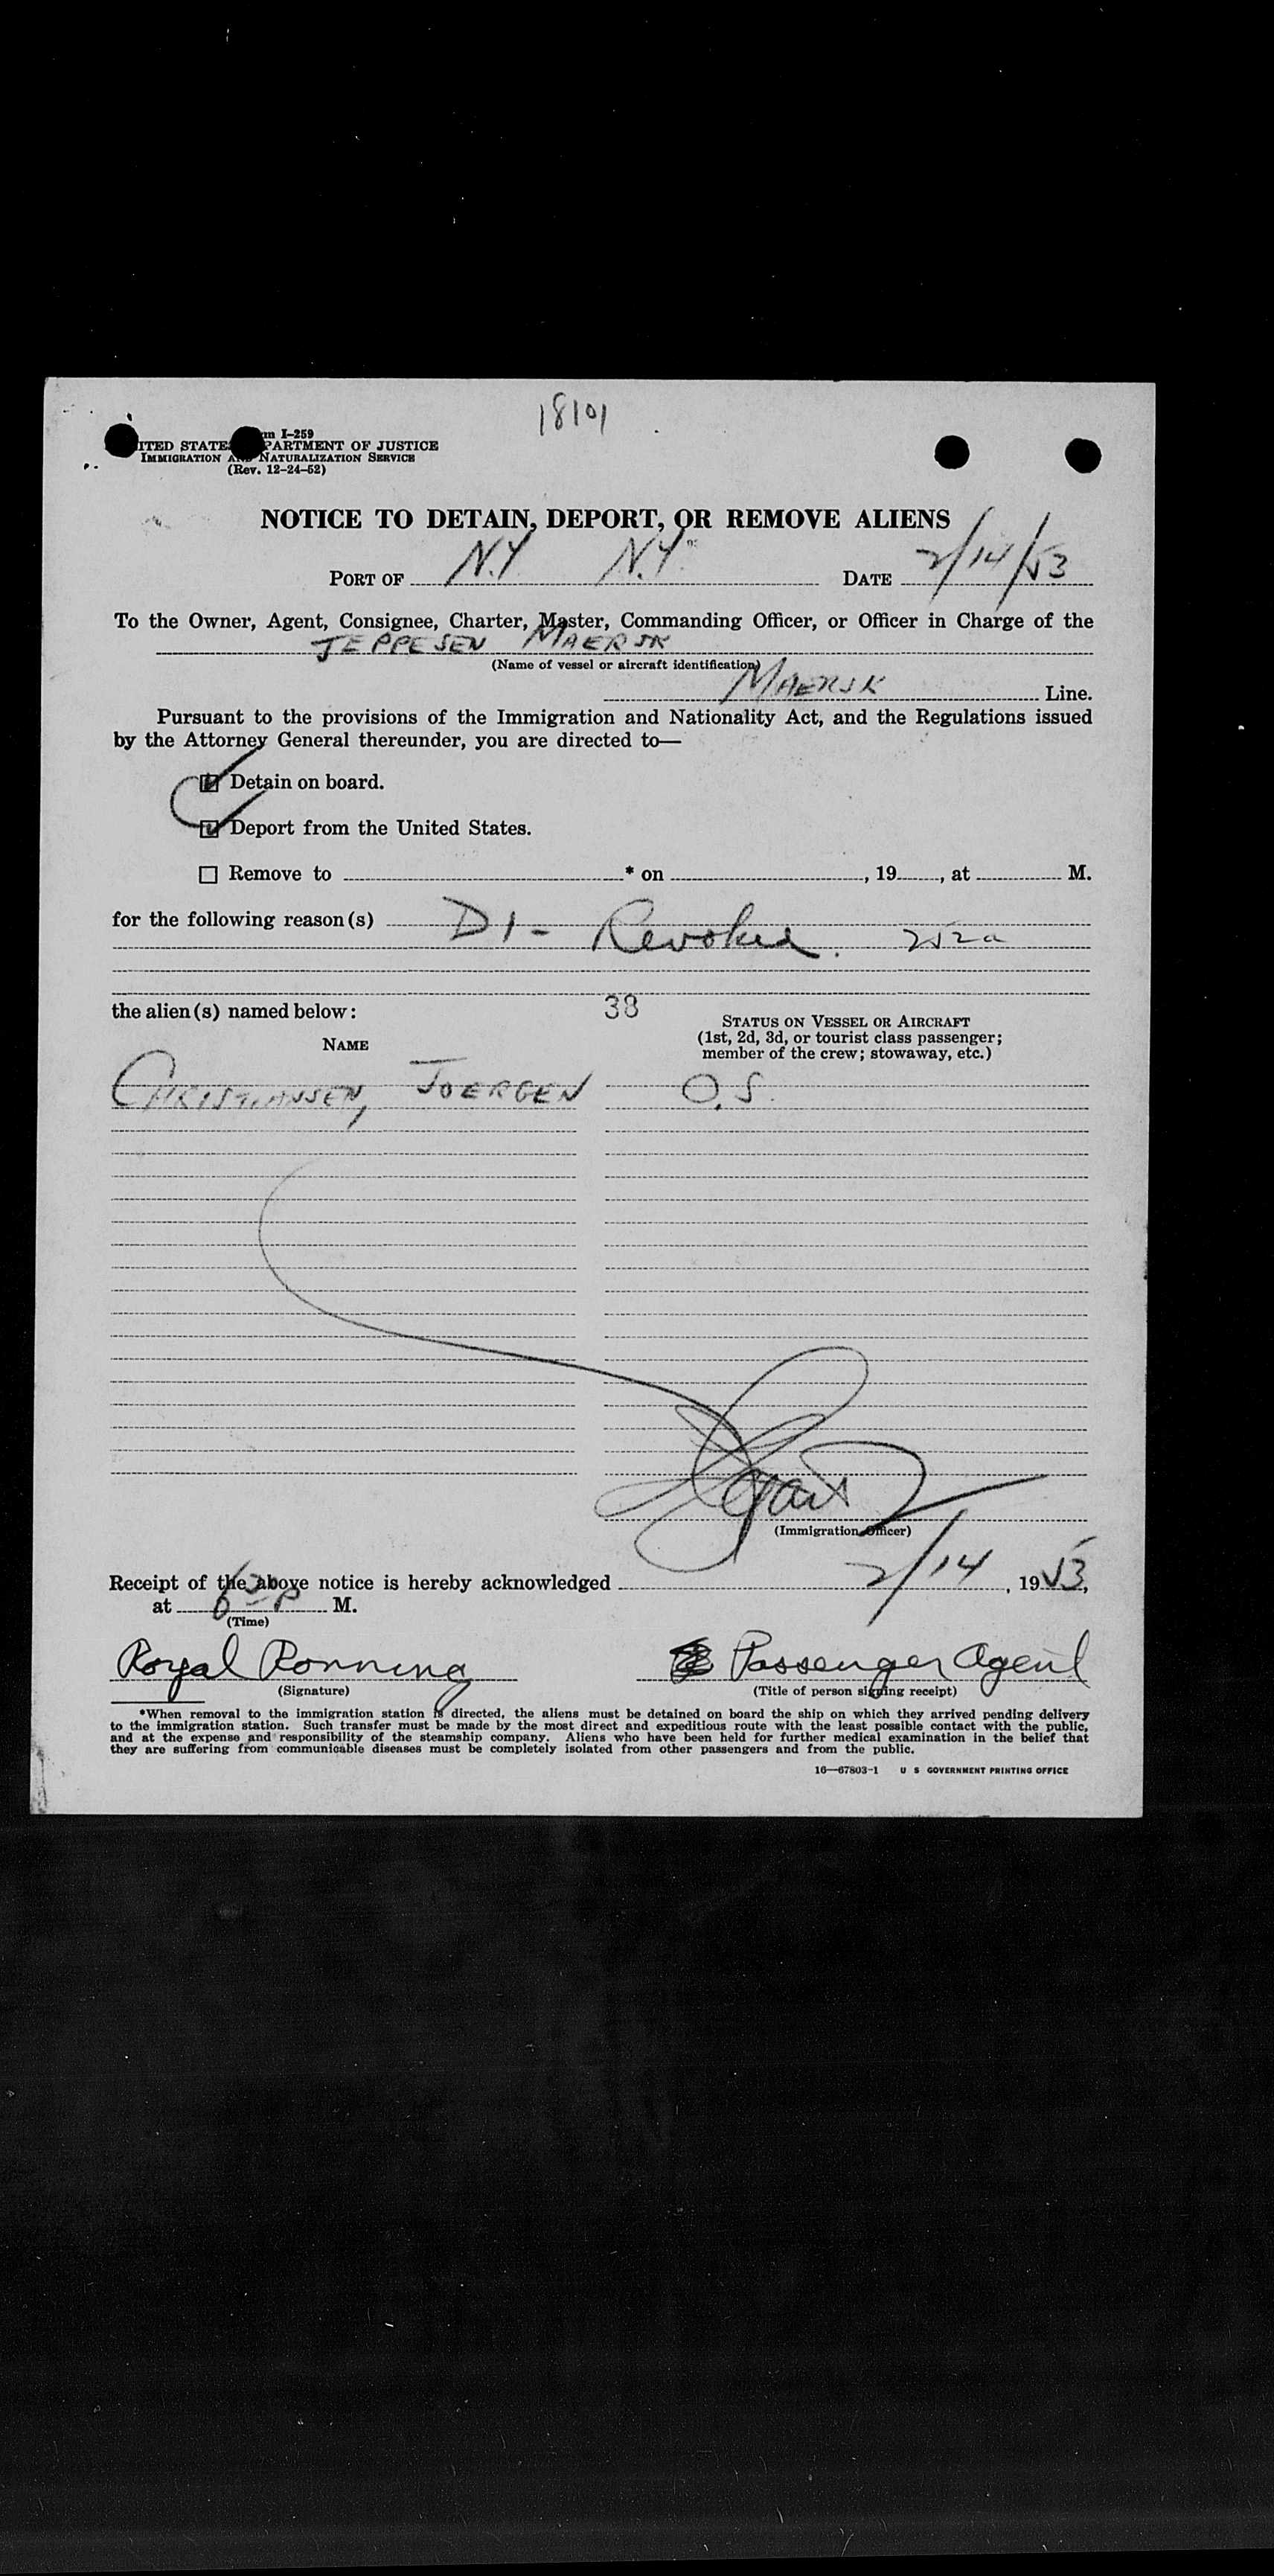 18101
m I-259
ITED STATE PARTMENT OF JUSTICE
IMMIGRATION AND NATURALIZATION SERVICE
(Rev. 12-24-52)
NOTICE TO DETAIN, DEPORT, OR REMOVE ALIENS
PORT OF N.Y. N.Y. DATE 2/14/53
To the Owner, Agent, Consignee, Charter, Master, Commanding Officer, or Officer in Charge of the
JEPPESEN MAERSK
(Name of vessel or aircraft identification)
MAERSK Line.
Pursuant to the provisions of the Immigration and Nationality Act, and the Regulations issued
by the Attorney General thereunder, you are directed to—
Detain on board.
Deport from the United States.
Remove to * on , 19 , at M.
for the following reason(s) D1- Revoked. 252a
the alien(s) named below: 38
STATUS ON VESSEL OR AIRCRAFT
(1st, 2d, 3d, or tourist class passenger;
member of the crew; stowaway, etc.)
NAME
CHRISTIANSEN, JOERGEN O.S.
(Immigration Officer)
Receipt of the above notice is hereby acknowledged 2/14, 1953,
at M.
(Time)
Royal Ronning Passenger Agent
(Signature) (Title of person signing receipt)
*When removal to the immigration station is directed, the aliens must be detained on board the ship on which they arrived pending delivery
to the immigration station. Such transfer must be made by the most direct and expeditious route with the least possible contact with the public,
and at the expense and responsibility of the steamship company. Aliens who have been held for further medical examination in the belief that
they are suffering from communicable diseases must be completely isolated from other passengers and from the public.
16—67803-1 U S GOVERNMENT PRINTING OFFICE